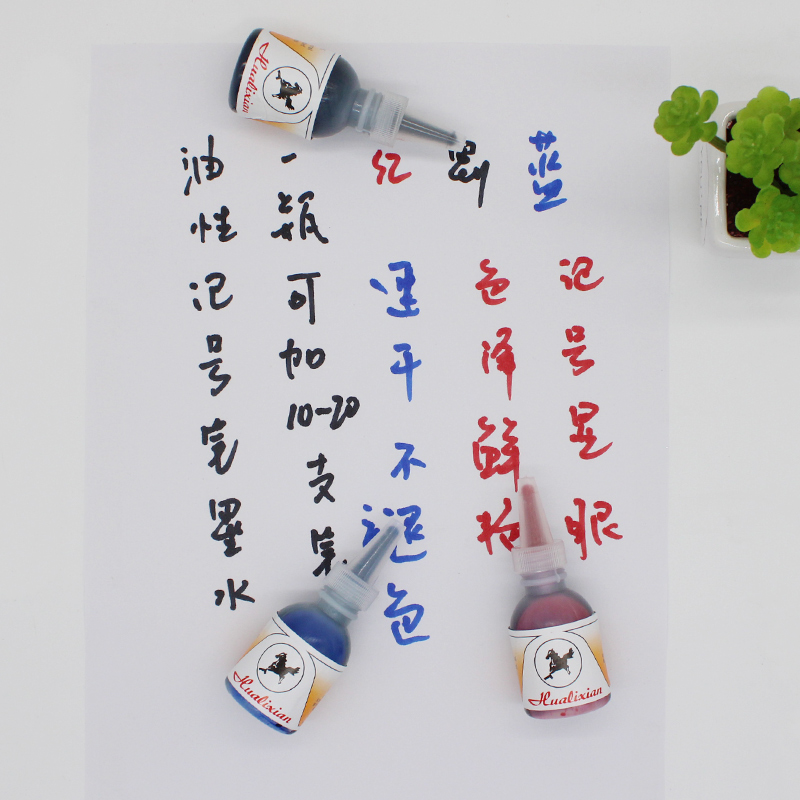 油性记号笔墨水
一瓶
可加
10-20
支笔
红
黑
蓝
速干不退色
色泽鲜艳
记号显眼
Hualixian
Hualixian
Hualixian